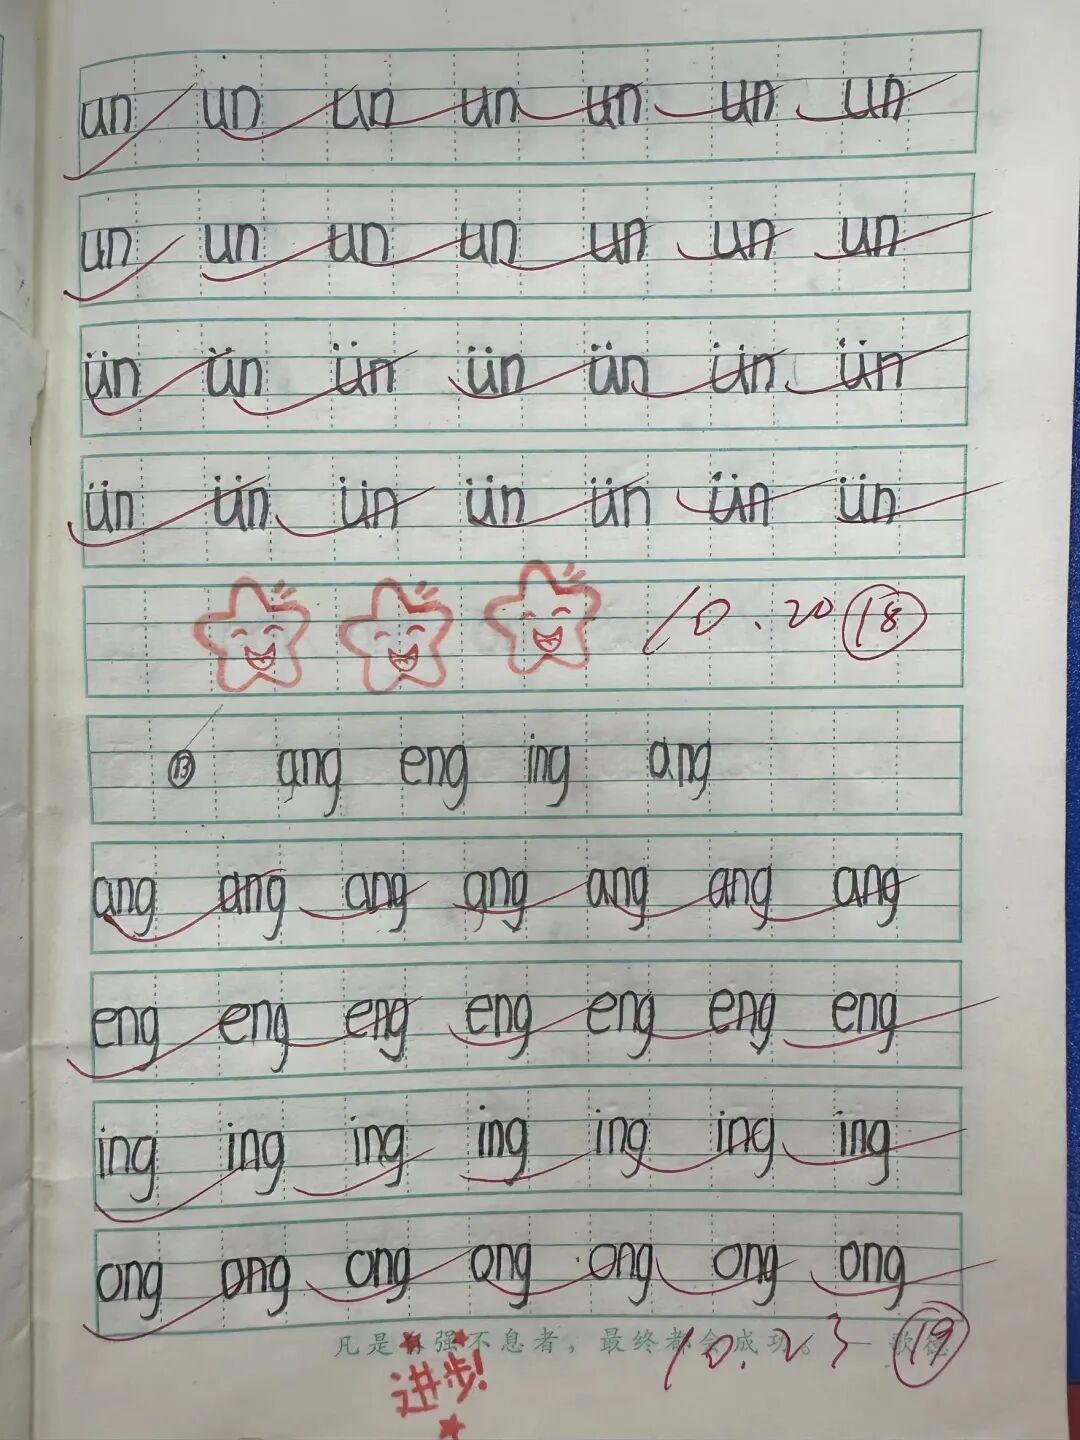 un un un un un un un
un un un un un un un
ün ün ün ün ün ün ün
ün ün ün ün ün ün ün
10.20 18
13 ang eng ing ang
ang ang ang ang ang ang ang
eng eng eng eng eng eng eng
ing ing ing ing ing ing ing
ong ong ong ong ong ong ong
凡是自强不息者，最终都会成功。—歌德
10.23 19
进步!